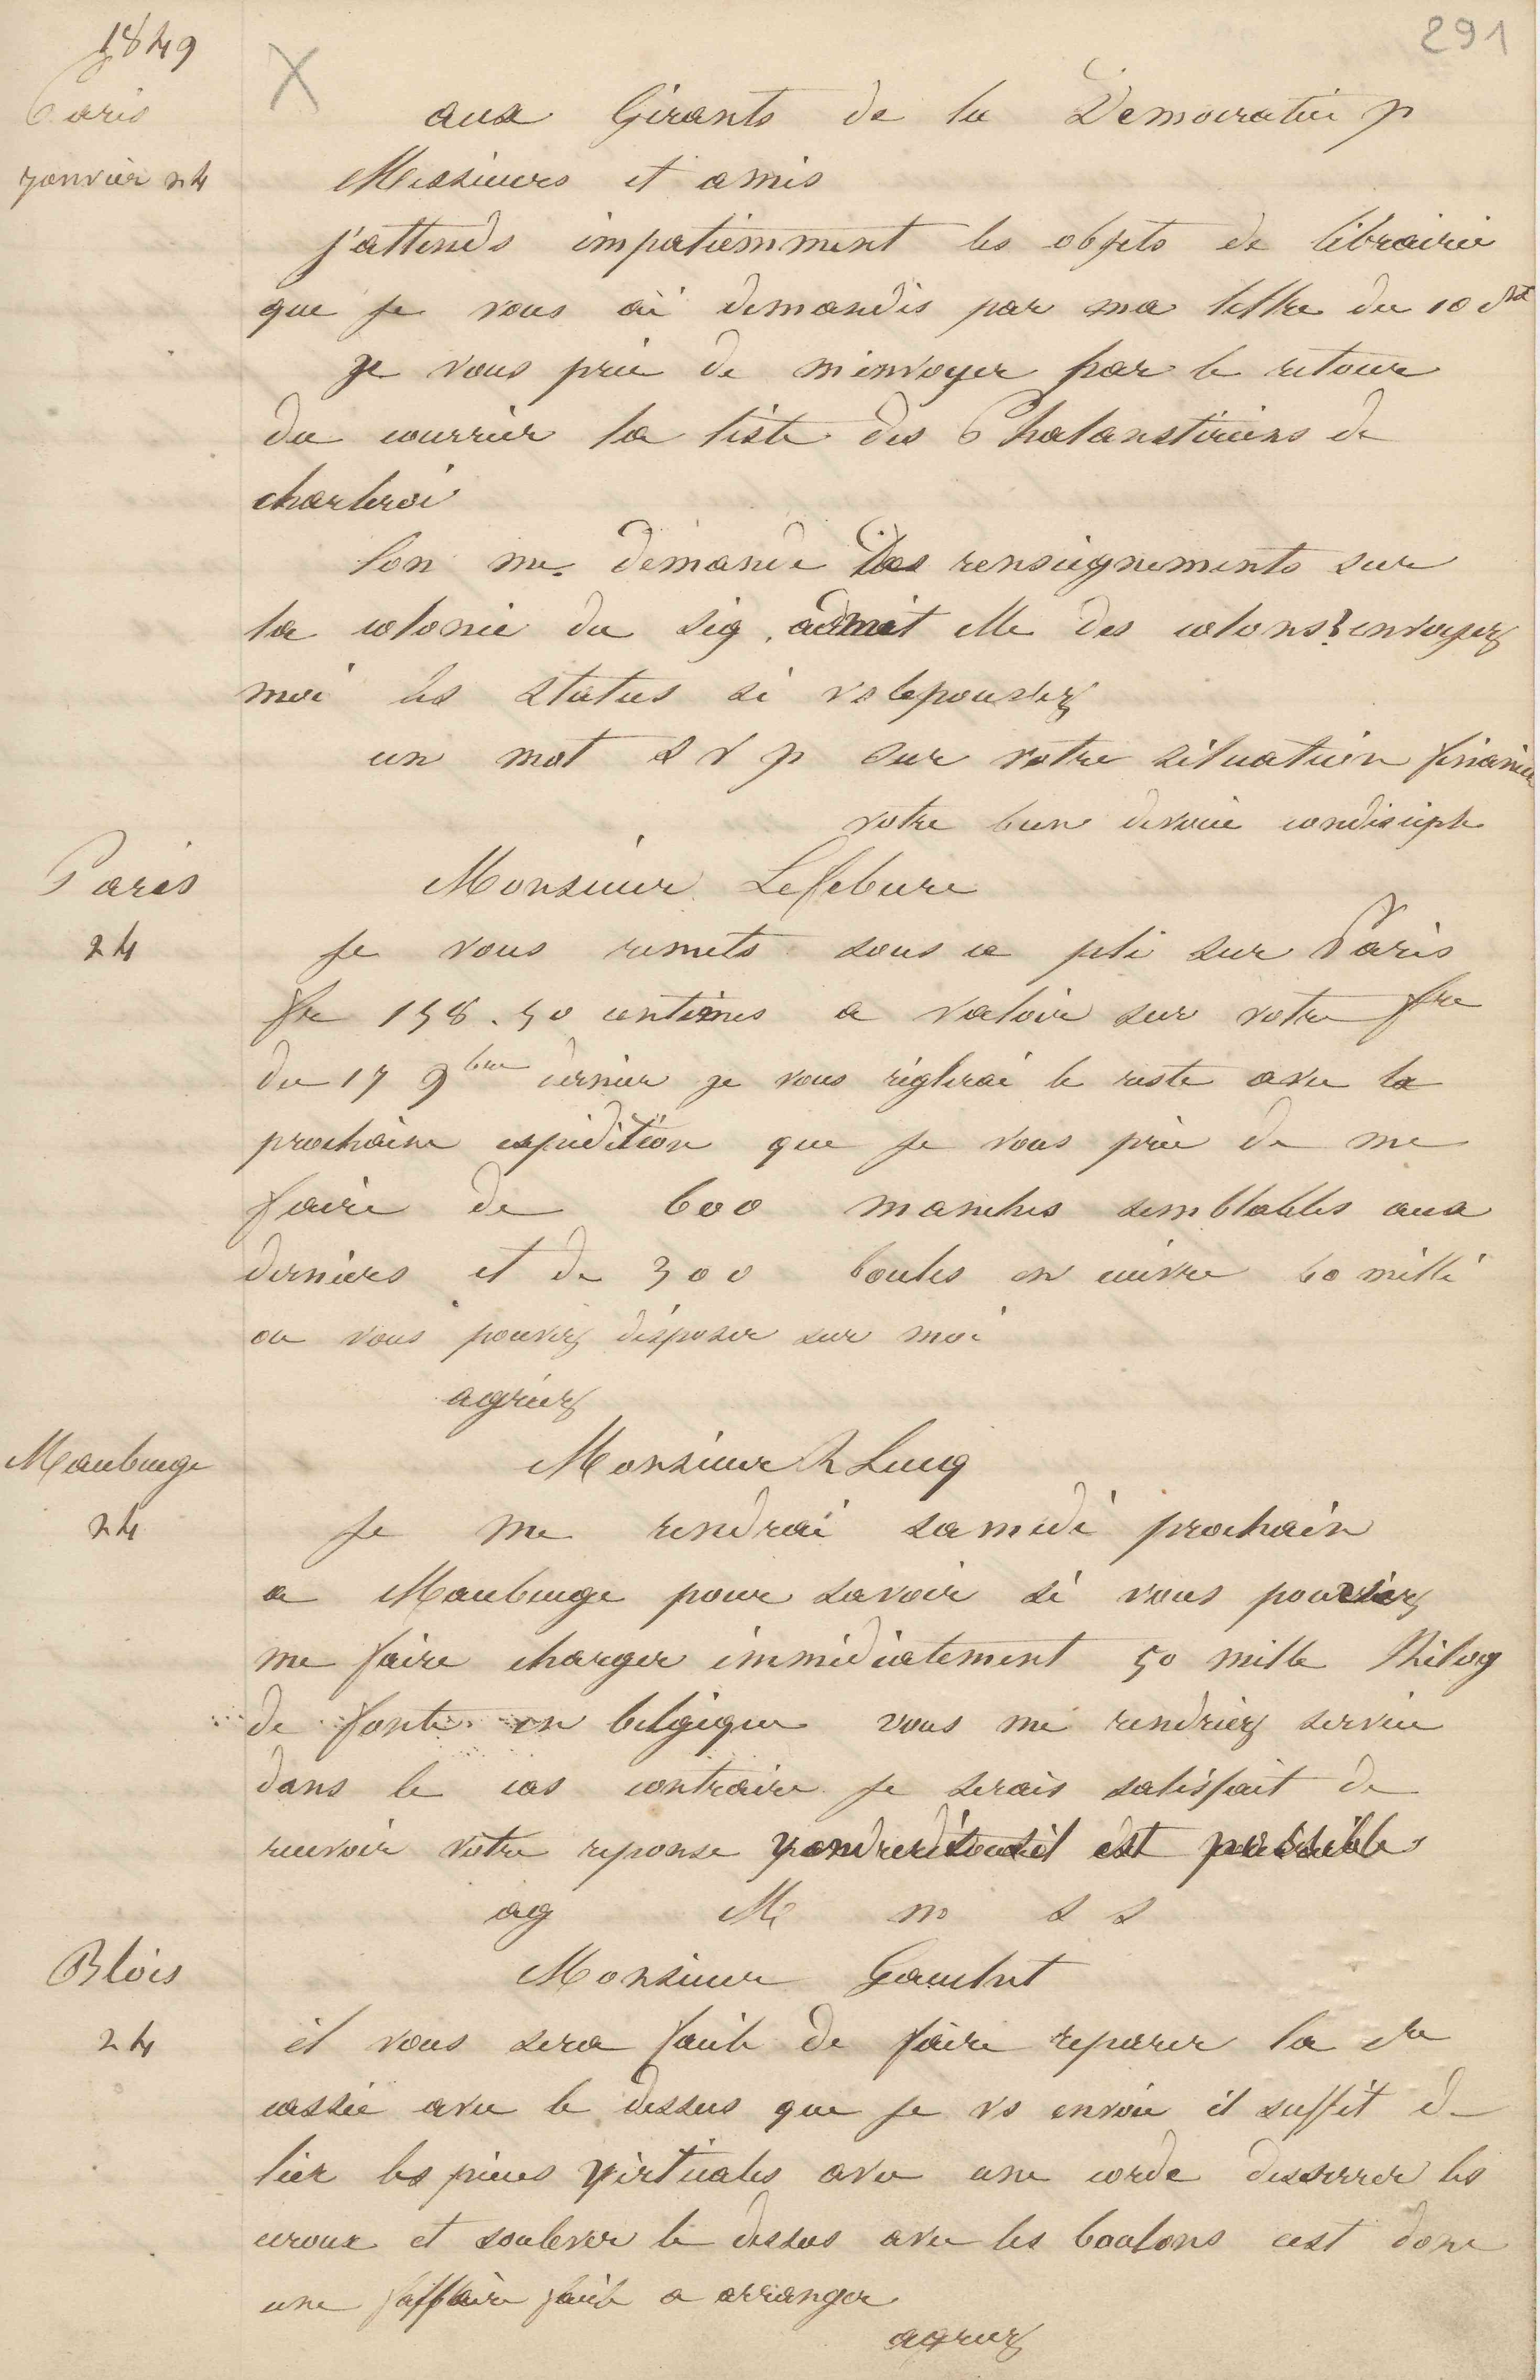 291
1849
Paris
janvier 24
X
aux Gérants de la Democratie p
Messieurs et amis
j'attends impatiemment les objets de librairie
que je vous ai demandés par ma lettre du 10 ct
je vous prie de m'envoyer par le retour
du courrier la liste des Phalanstériens de
charleroi
l'on me demande des renseignements sur
la colonie du sig, admet elle des colons? envoyez
moi les status si vs le pouvez
un mot s v p sur votre situation financie
votre bien dévoué condisciple
Paris
24
Monsieur Lefebure
je vous remets sous ce pli sur Paris
fr 158.50 centimes a valoir sur votre fre
du 17 9bre dernier je vous réglerai le reste avec la
prochaine expédition que je vous prie de me
faire de 600 manches semblables aux
derniers et de 300 boules en cuivre 60 milli
ou vous pouvez disposer sur moi
agréez
Maubeuge
24
Monsieur R Lucq
je me rendrai samedi prochain
a Maubeuge pour savoir si vous pouviez
me faire charger immédiatement 50 mille Kilog
de fonte en belgique vous me rendriez service
dans le cas contraire je serais satisfait de
recevoir votre reponse vendredi s'il est possible
ag M m s s
Blois
24
Monsieur Gaudut
il vous sera facile de faire reparer la cre
cassée avec le dessus que je vs envoie il suffit de
lier les pieces verticales avec une corde desserrer les
ecroux et soulever le dessus avec les boulons cest donc
une affaire facile a arranger
agreez